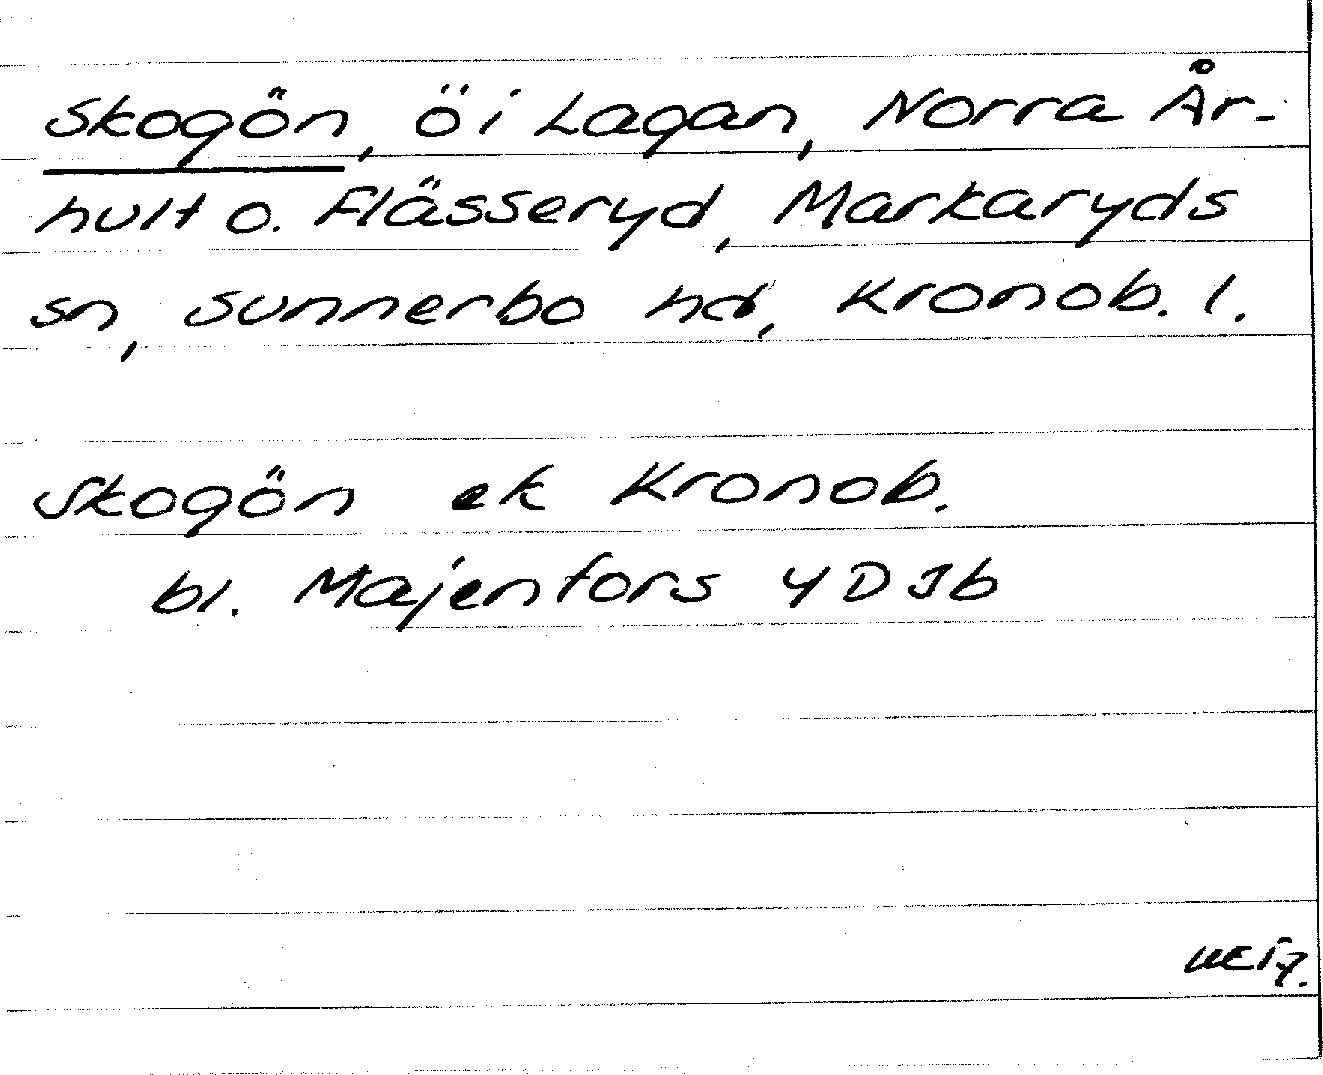 Skogön, ö i Lagan, Norra År-
hult o. Flässeryd, Markaryds
sn, Sunnerbo hd, Kronob. l.
Skogön ek Kronob.
bl. Majenfors 4D Jb